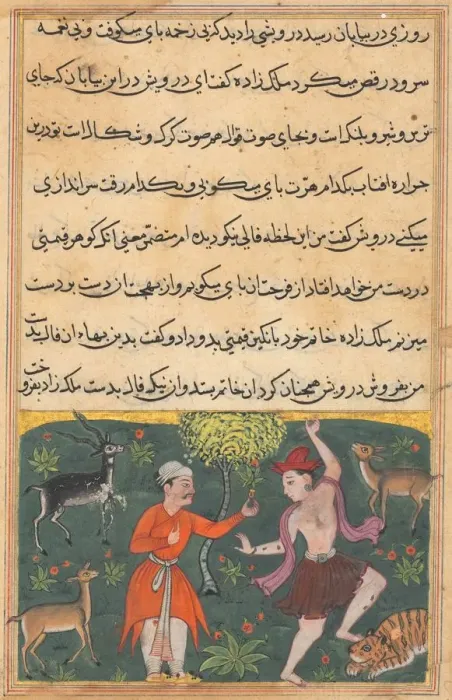 روزی در بیابان رسید درویشی را دید که بی زخمه پای میکوفت و بی نغمه
سرود رقص میکرد ملک زاده گفت ای درویش در این بیابان که جای
و شیر و پلنک است و بجای صوت قوال هم صوت کرک و شکال است تو درین
حرارة افتاب بکدام پای میکوبی و بکدام رقت سراندازی
میکنی درویش گفت من این لحظه فالی نیکو دیده ام متضمن معنی انکه کوهر قیمتی
در دست من خواهد افتاد از فرح ان پای میکوبم و از بهجت ان دست بر دست
میزنم ملک زاده خاتم خود با نکین قیمتی بدو داد و گفت بدین بها ان فال بدست
من بفروش درویش همچنان کرد ان خاتم بستد و ان نیک فال بدست ملک زاده بفروخت